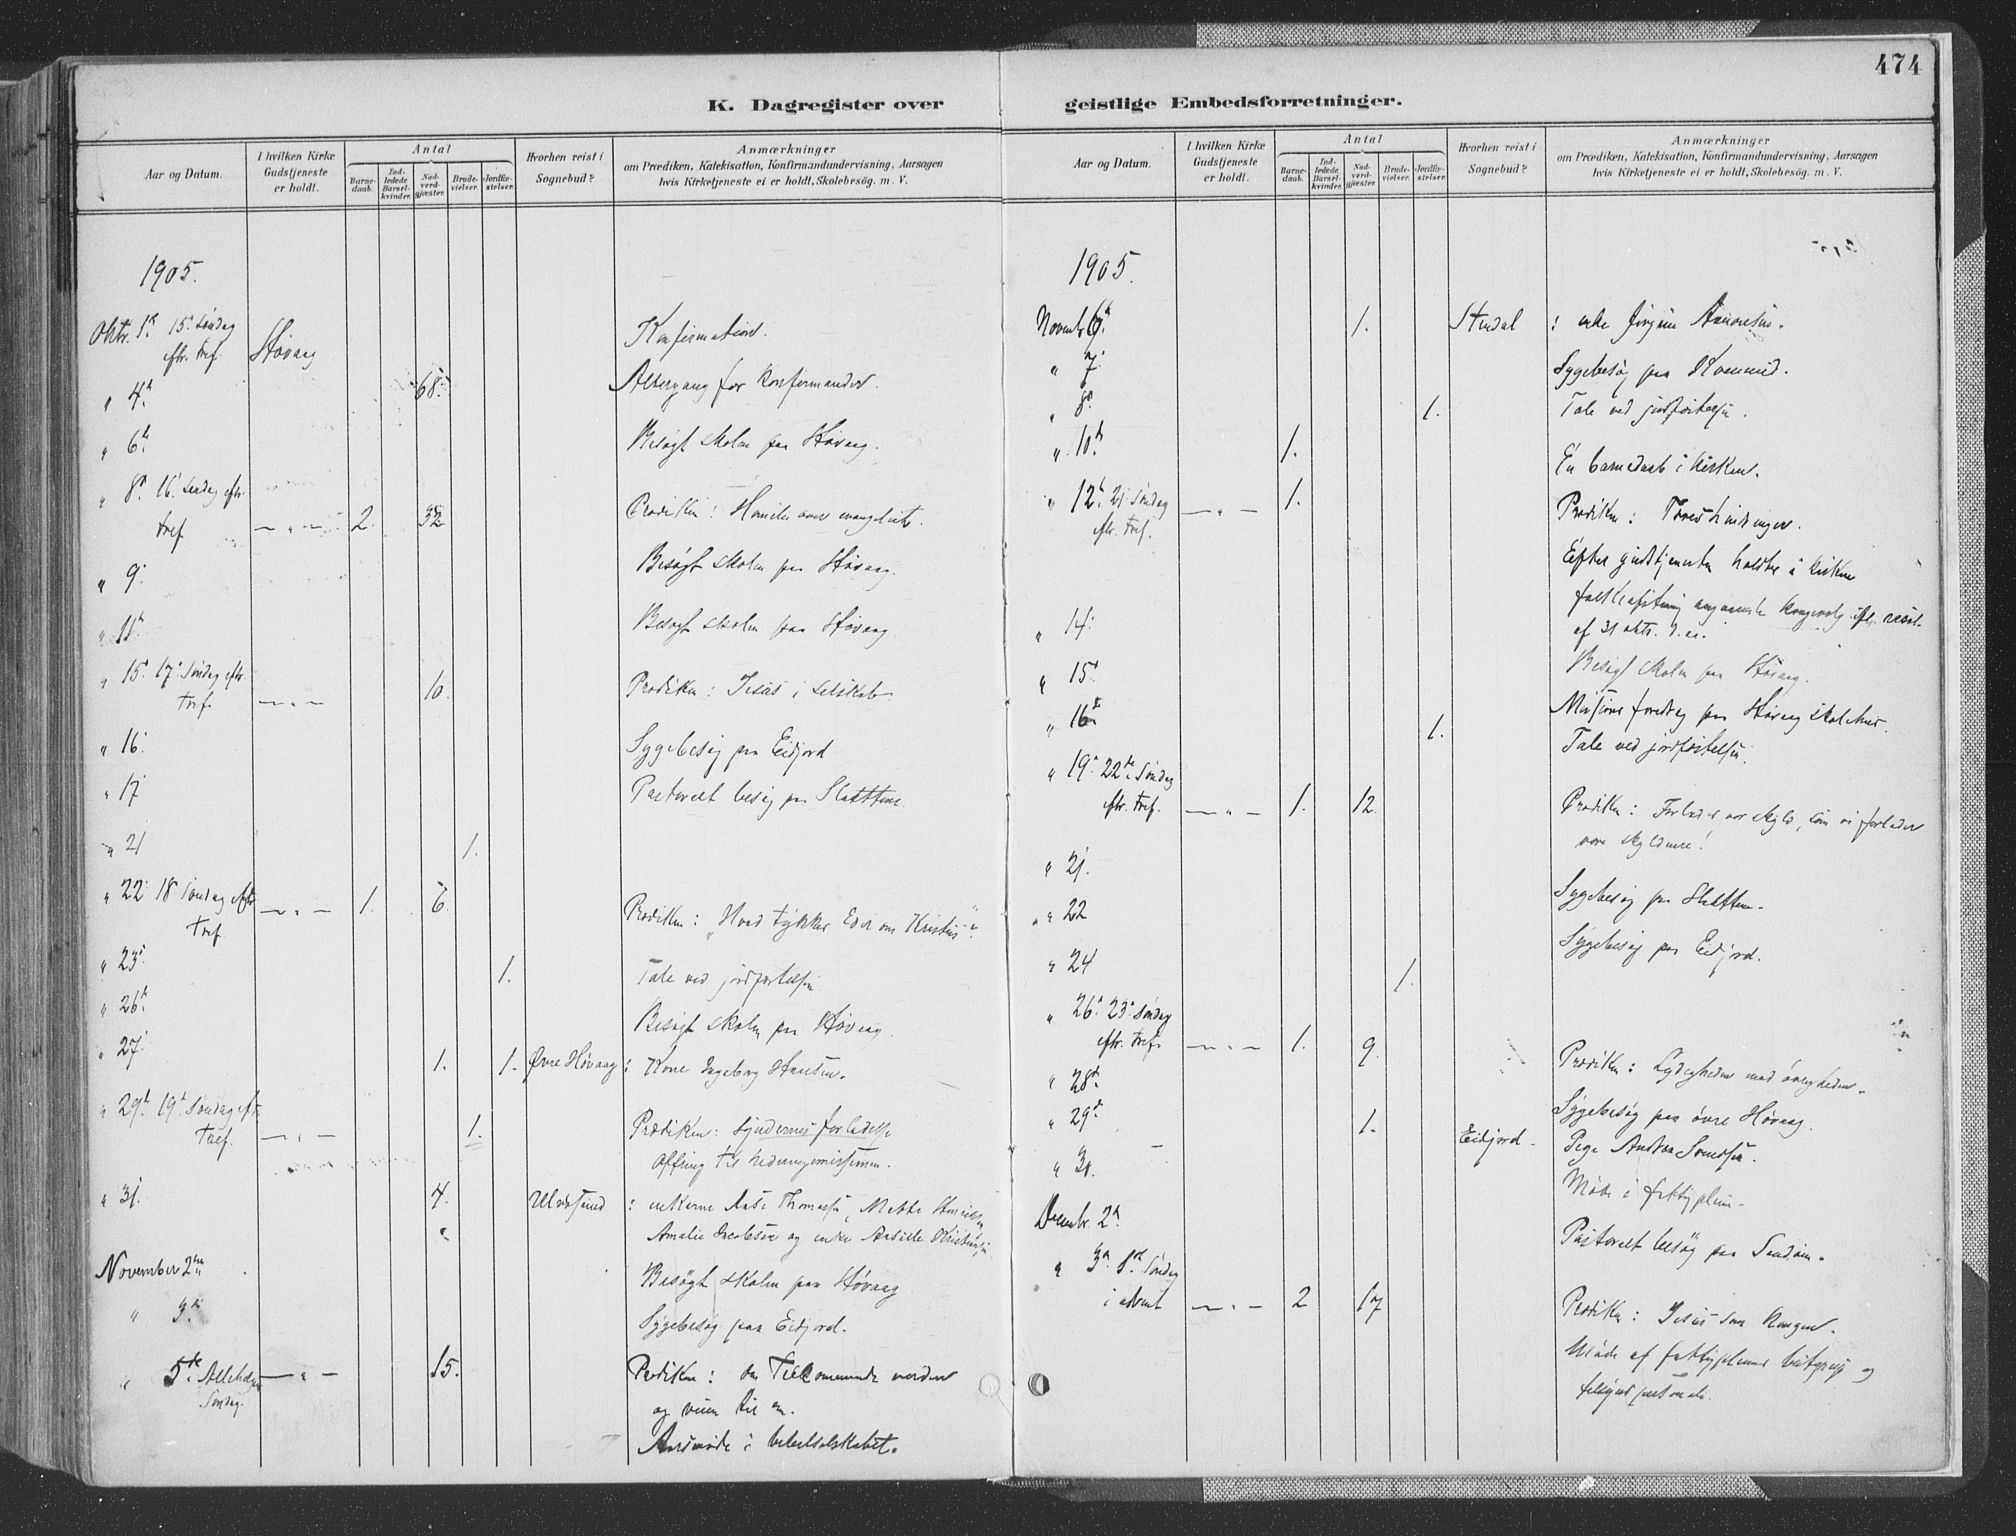 474
K. Dagregister over geistlige Embedsforretninger.
Aar og Datum.
I hvilken Kirke Gudstjeneste er holdt.
Antal
Barne-daab.
Ind-ledede Barsel-kvinder.
Nad-verd-gjæster.
Brude-vielser.
Jordfæ-stelser.
Hvorhen reist i Sognebud?
Anmærkninger
om Prædiken, Katekisation, Konfirmandundervisning, Aarsagen
hvis Kirketjeneste ei er holdt, Skolebesøg. m. V.
1905.
Oktr. 1ste 15de Søndag
eftr. tref. Høvaag Konfirmation.
" 4de 68. Altergang for konfirmander.
" 6te Besøgt skolen paa Høvaag.
" 8de 16de Søndag eftr.
tref. — " — 2. 32 Prædiken: Homilie over evangeliet.
" 9. Besøgt skolen paa Høvaag.
" 11te Besøgt skolen paa Høvaag
" 15de 17de Søndag eftr.
tref. — " — 10. Prædiken: Jesus i selskab.
" 16. Sygebesøg paa Eidjord
" 17 Pastoralt besøg paa Slettene.
" 21 1.
" 22. 18 Søndag eftr.
tref. — " — 1. 6. Prædiken: "Hvad tykkes Eder om Kristus"?
" 23de 1. Tale ved jordfæstelsen
" 26de Besøgt skolen paa Høvaag.
" 27. 1. 1. Øvre Høvaag: Kone Ingeborg Hansen.
" 29de 19de Søndag eftr.
tref. — " — 1. Prædiken: Syndernes forladelse
Offring til hedningemissionen.
" 31. 4. Ulvøsund: enkerne Aase Thomassen, Mette
Amalie Jacobsen og enke
November 2den Besøgt skolen paa Høvaag
" 3de Sygebesøg paa Eidjord.
" 5te Allehelgens
Søndag. — " — 15. Prædiken: den Tilkommende verden
og veien til den.
Aarsmøde i bibelselskabet.
Aar og Datum.
I hvilken Kirke Gudstjeneste er holdt.
Antal
Barne-daab.
Ind-ledede Barsel-kvinder.
Nad-verd-gjæster.
Brude-vielser.
Jordfæ-stelser.
Hvorhen reist i Sognebud?
Anmærkninger
om Prædiken, Katekisation, Konfirmandundervisning, Aarsagen
hvis Kirketjeneste ei er holdt, Skolebesøg. m. V.
1905.
Novembr. 6te 1. Stedal: enke Jørgine
" 7. Sygebesøg paa
" 8de 1. Tale ved jordfæstelsen.
" 10de 1. En barnedaab i kirken.
" 12te 21. Søndag
eftr. tref. — " — 1. Prædiken:
Efter gudstjenesten holdtes i kirken
folkeafstemning angaaende kongevalg ifl. resol.
af 31 oktr. d.a.
" 14. Besøgt skolen paa Høvaag.
" 15de Missions foredrag paa Høvaag skolehus.
" 16de 1. Tale ved jordfæstelsen.
" 19de 22de Søndag
eftr. tref. — " — 1. 12. Prædiken: Forlad os vor skyld, som vi forlader
vore skyldnere!
" 21. Sygebesøg paa Slettene.
" 22 Sygebesøg paa Eidjord.
" 24 1.
" 26de 23de Søndag
eftr. tref. — " — 1. 9. Prædiken: Lydigheden mod øvrigheden.
" 28de Sygebesøg paa øvre Høvaag.
" 29de 1. Eidjord. Pige Andrea
" 30. Møde i fattigplein.
Decembr. 2den Pastoralt besøg paa
" 3de 1ste Søndag
i advent — " — 2 17 Prædiken: Jesus som kongen.
Møde af fattigpleiens